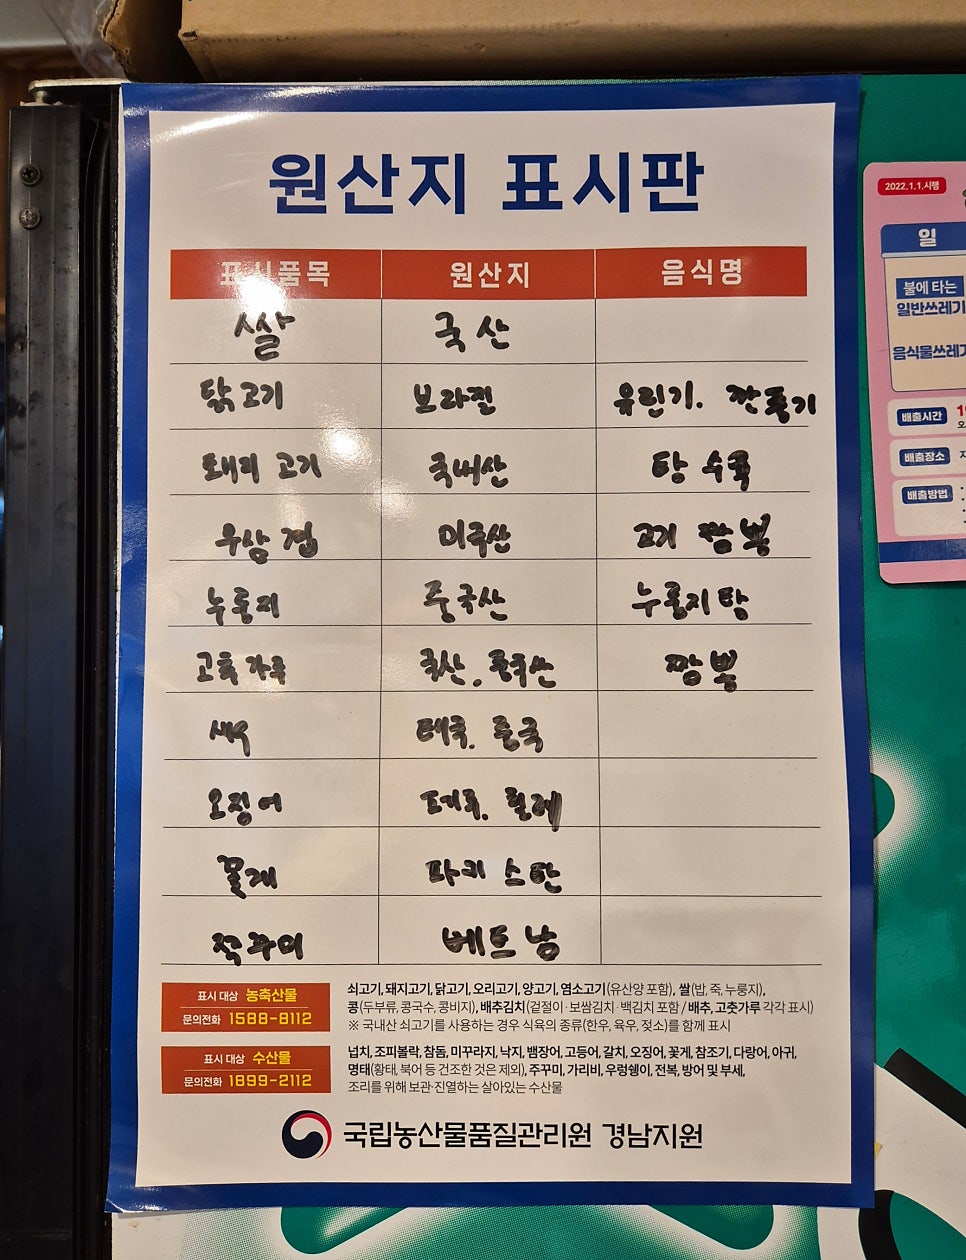 원산지 표시판
표시품목 원산지 음식명
쌀 국산
닭고기 브라질 유린기. 깐풍기
돼지고기 국내산 탕수육
우삼겹 미국산 고기짬뽕
누룽지 중국산 누룽지탕
고춧가루 국산. 중국산 짬뽕
새우 태국. 중국
오징어 칠레
꽃게 파키스탄
쭈꾸미 베트남
표시 대상 농축산물
문의전화 1588-8112
쇠고기, 돼지고기, 닭고기, 오리고기, 양고기, 염소고기(유산양 포함), 쌀(밥, 죽, 누룽지),
콩(두부류, 콩국수, 콩비지), 배추김치(겉절이·보쌈김치·백김치 포함 / 배추, 고춧가루 각각 표시)
※ 국내산 쇠고기를 사용하는 경우 식육의 종류(한우, 육우, 젖소)를 함께 표시
표시 대상 수산물
문의전화 1899-2112
넙치, 조피볼락, 참돔, 미꾸라지, 낙지, 뱀장어, 고등어, 갈치, 오징어, 꽃게, 참조기, 다랑어, 아귀,
명태(황태, 북어 등 건조한 것은 제외), 주꾸미, 가리비, 우렁쉥이, 전복, 방어 및 부세,
조리를 위해 보관·진열하는 살아있는 수산물
국립농산물품질관리원 경남지원
2022.1.1.시행
일
불에 타는
일반쓰레기
음식물쓰레기
배출시간
배출장소
배출방법